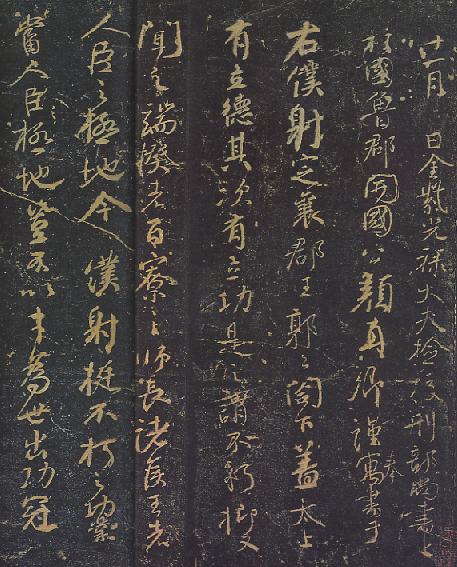 十一月 日金紫光祿大夫檢校刑部尚書上
柱國魯郡開國公顏真卿謹奉寓書于
右僕射定襄郡王郭公閣下蓋太上
有立德其次有立功是之謂不朽抑又
聞之端揆者百寮之師長諸侯王者
人臣之極地今僕射挺不朽之功業
當人臣極地豈不以才為世出功冠